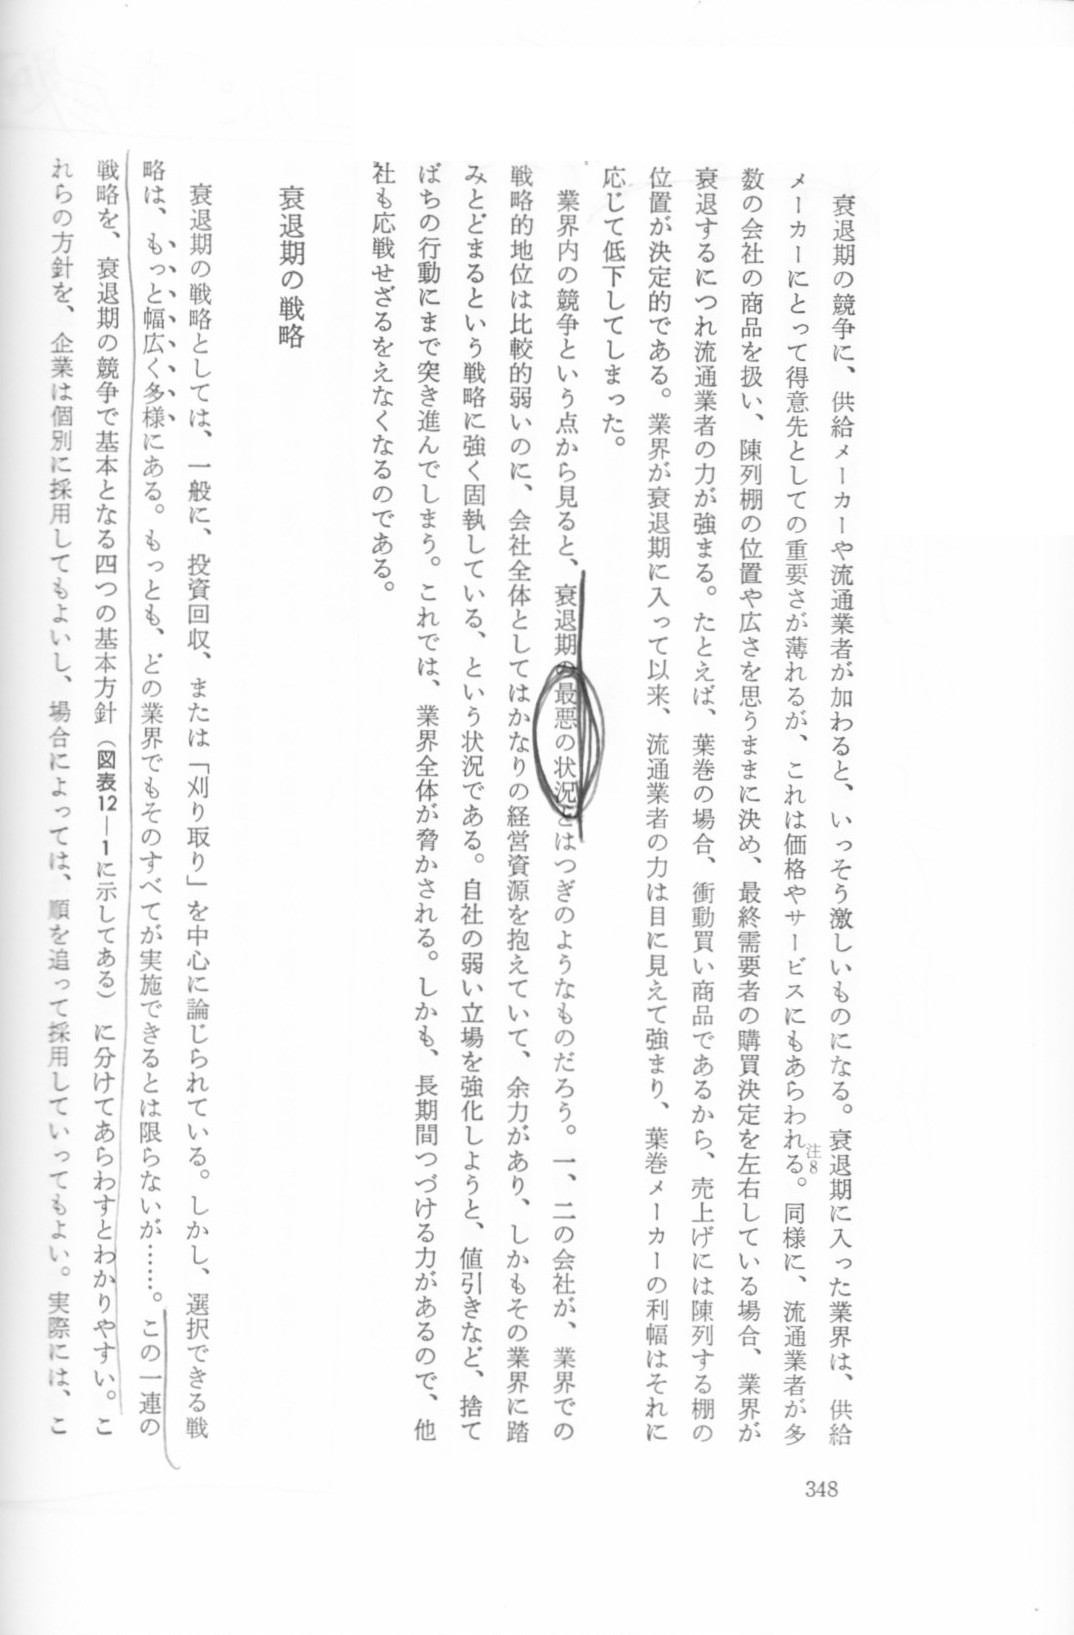 衰退期の競争に、供給メーカーや流通業者が加わると、いっそう激しいものになる。衰退期に入った業界は、供給
メーカーにとって得意先としての重要さが薄れるが、これは価格やサービスにもあらわれる。注8同様に、流通業者が多
数の会社の商品を扱い、陳列棚の位置や広さを思うままに決め、最終需要者の購買決定を左右している場合、業界が
衰退するにつれ流通業者の力が強まる。たとえば、葉巻の場合、衝動買い商品であるから、売上げには陳列する棚の
位置が決定的である。業界が衰退期に入って以来、流通業者の力は目に見えて強まり、葉巻メーカーの利幅はそれに
応じて低下してしまった。
業界内の競争という点から見ると、衰退期の最悪の状況とはつぎのようなものだろう。一、二の会社が、業界での
戦略的地位は比較的弱いのに、会社全体としてはかなりの経営資源を抱えていて、余力があり、しかもその業界に踏
みとどまるという戦略に強く固執している、という状況である。自社の弱い立場を強化しようと、値引きなど、捨て
ばちの行動にまで突き進んでしまう。これでは、業界全体が脅かされる。しかも、長期間つづける力があるので、他
社も応戦せざるをえなくなるのである。
衰退期の戦略
衰退期の戦略としては、一般に、投資回収、または「刈り取り」を中心に論じられている。しかし、選択できる戦
略は、もっと幅広く多様にある。もっとも、どの業界でもそのすべてが実施できるとは限らないが……。この一連の
戦略を、衰退期の競争で基本となる四つの基本方針（図表12—1に示してある）に分けてあらわすとわかりやすい。こ
れらの方針を、企業は個別に採用してもよいし、場合によっては、順を追って採用していってもよい。実際には、こ
348